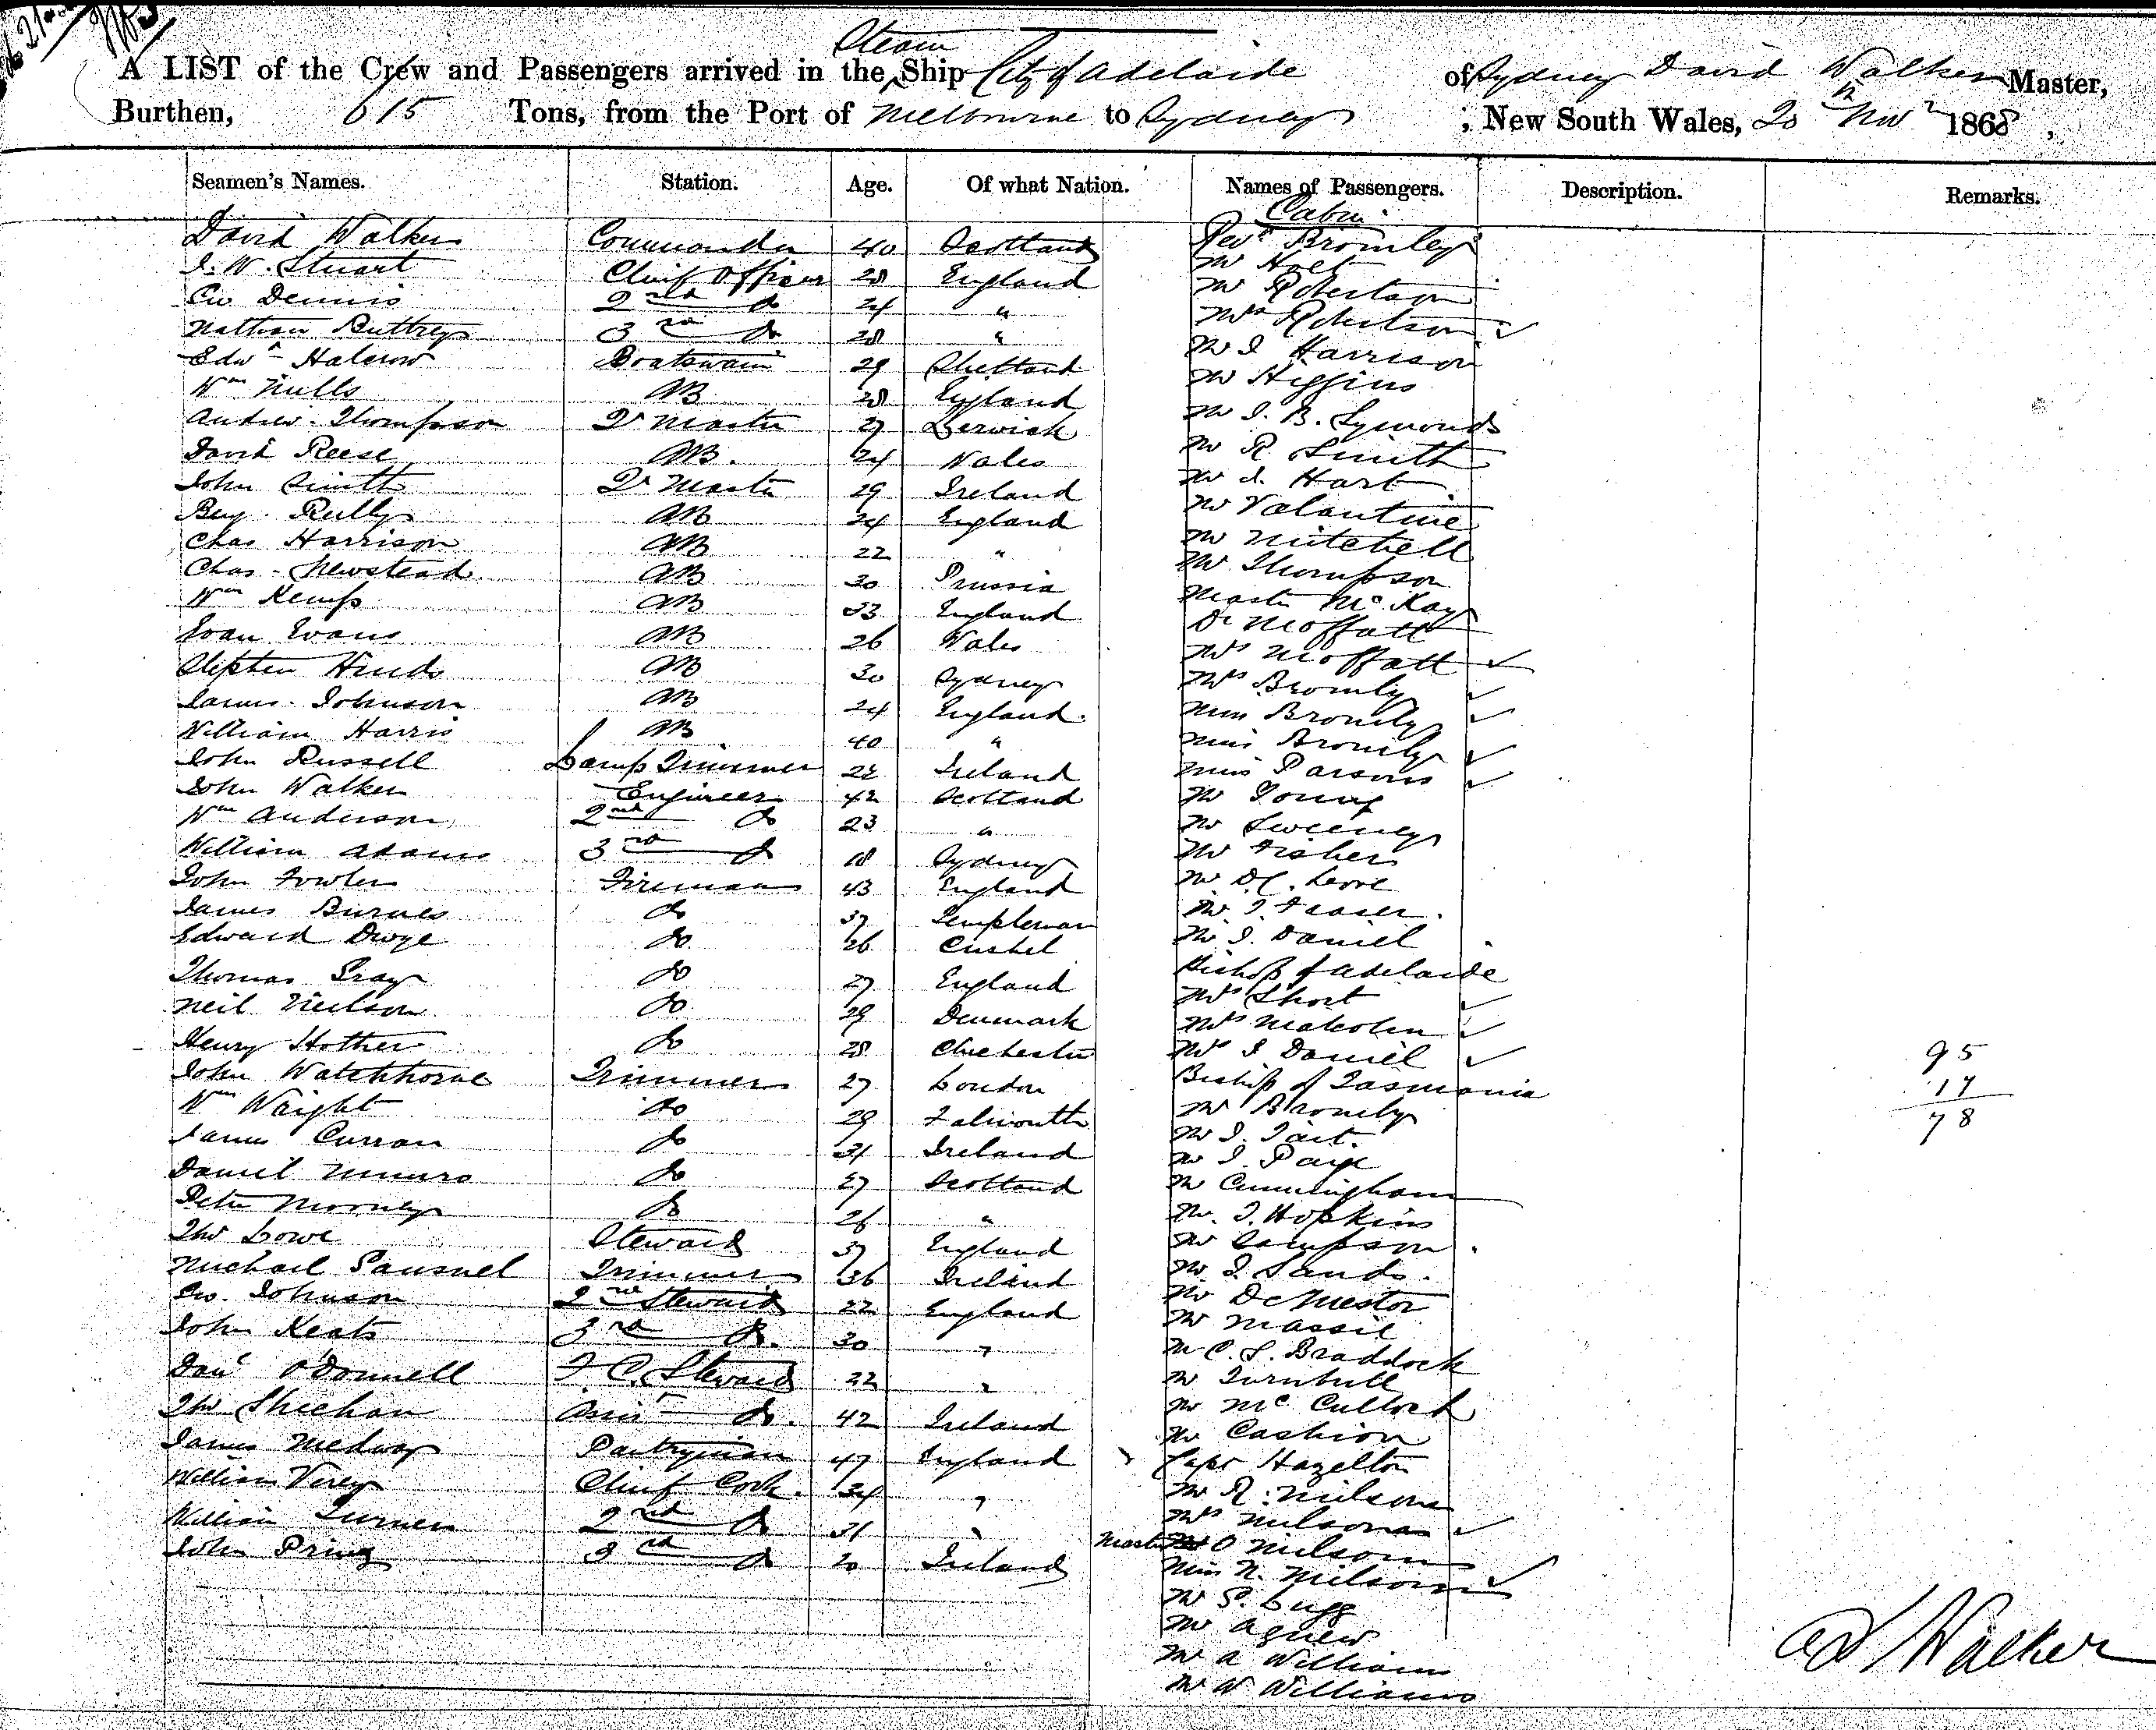 Steam
A LIST of the Crew and Passengers arrived in the Ship City of Adelaide of Sydney David Walker Master,
Burthen, 615 Tons, from the Port of Melbourne to Sydney ; New South Wales, 20th Novr 1868,
Seamen's Names. Station. Age. Of what Nation. Names of Passengers. Description. Remarks.
Cabin
David Walker Commander 40 Scotland Revd Bromley
J. W. Stuart Chief Officer 28 England Mr Holt
Geo Dennis 2nd do 24 " Mr Robertson
Nathan Buttrey 3rd do 28 " Mrs Robertson ✓
Edwd Halcrow Boatswain 29 Shetland Mr J Harrison
Wm Mills AB 28 England Mr Higgins
Andrew Thompson Qr Master 27 Lerwick Mr J. B. Symonds
David Reese AB. 24 Wales Mr R Smith
John Smith Qr Master 29 Ireland Mr J. Hart
Benj. Rully AB 24 England Mr Valantine
Chas Harrison AB 22 " Mr Mitchell
Chas. Newstead AB 30 Prussia Mr Thompson
Wm Kemp AB 33 England Master McKay
Evan Evans AB 26 Wales Dr Moffatt
Stephen Hinds AB 30 Sydney Mrs Moffatt ✓
James Johnson AB 24 England. Mrs Bromly ✓
William Harris AB 40 " Miss Bromly ✓
John Russell Lamp Trimmer 22 Ireland Miss Bromly ✓
John Walker Engineer 42 Scotland Miss Parsons ✓
Wm Anderson 2nd do 23 " Mr Young
William Adams 3rd do 18 Sydney Mr Sweeney
John Fowler Fireman 43 England Mr Fisher
James Burnes do 37 Templemore Mr D. C.
Edward Dwye do 26 Cashel Mr J. Fraser.
Thomas Gray do 27 England Mr J. Daniel
Neil Neilson do 29 Denmark Bishop of Adelaide
Henry Hother do 28 Chichester Mrs Short ✓
John Watchhorne Trimmer 27 London Mrs Malcolm ✓
Wm Wright do 29 Falmouth Mrs J Daniel ✓
James Curran do 31 Ireland Bishop of Tasmania
Daniel Munro do 27 Scotland Mr Bromly
Peter Mooney do 26 " Mr J. Tait.
Thos Lowe Steward 37 England Mr J. Paige
Michael Trimmer 36 Ireland Mr Cunningham
Geo. Johnson 2nd Steward 22 England Mr. J. Hopkins
John Keats 3rd do. 30 " Mr Sampson.
Danl O'Donnell F. C. Steward 22 " Mr J. Sands.
Thos Sheehan Assist do. 42 Ireland Mr De Mestor
James Medway Pantryman 47 England Mr Massie
William Verey Chief Cook. 34 " Mr C. S. Braddock
William Turner 2nd do 31 " Mr Turnbull
John Pring 3rd do 20 Ireland Mr McCulloch
Mr Cashion
Capt Hazelton
Mr R. Milsom
Mrs Milsom ✓
Master O Milsom
Miss N. Milsom ✓
Mr S. Lugg
Mr Agnew
Mr A Williams
Mr W Williams
95
17
78
Walker